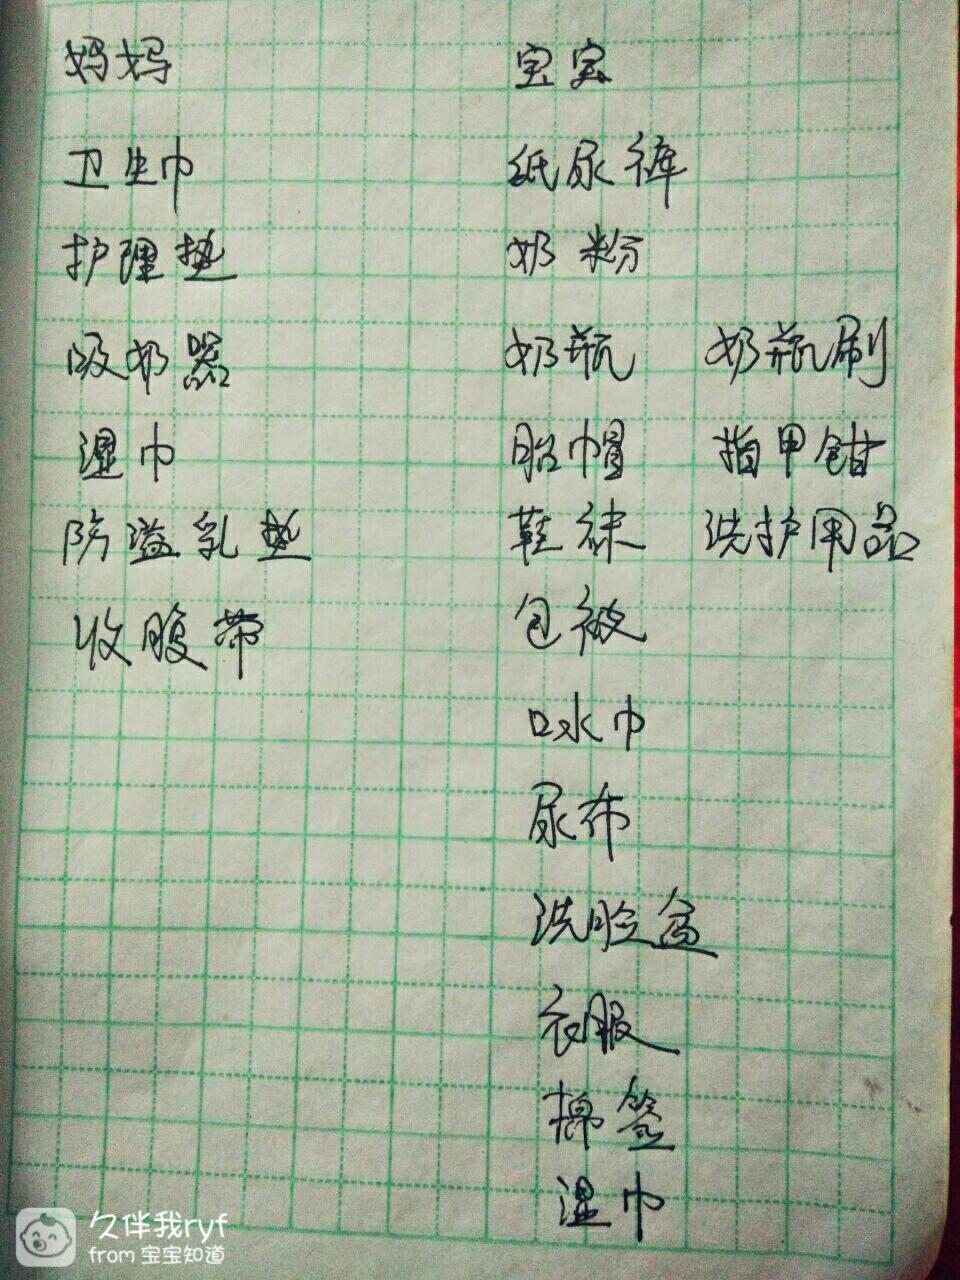 妈妈 宝宝
卫生巾 纸尿裤
护理垫 奶粉
吸奶器 奶瓶 奶瓶刷
湿巾 胎帽 指甲钳
防溢乳垫 鞋袜 洗护用品
收腹带 包被
口水巾
尿布
洗脸盆
衣服
棉签
湿巾
久伴我ryf
from 宝宝知道